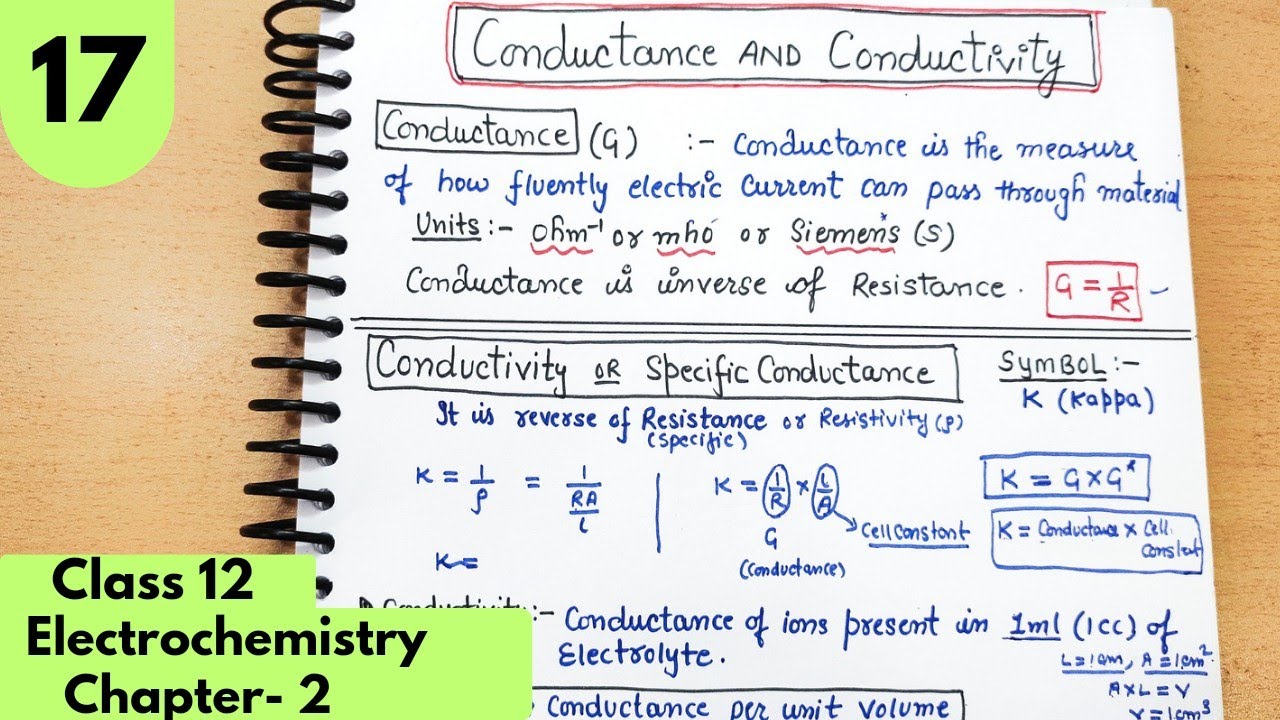 17
Conductance AND Conductivity
Conductance (G) :- Conductance is the measure
of how fluently electric current can pass through material
Units :- Ohm⁻¹ or mho or Siemens (S)
Conductance is inverse of Resistance. G = 1/R
Conductivity OR Specific Conductance
SYMBOL :-
K (Kappa)
It is reverse of Resistance or Resistivity (ρ)
(Specific)
K = 1/ρ = 1/(RA/L)
K = (1/R) × (L/A)
Cell Constant
G
(Conductance)
K =
K = G × G*
K = Conductance × Cell
Constant
Conductivity :- Conductance of ions present in 1ml (1CC) of
Electrolyte.
L = 1cm, A = 1cm²
A×L = V
V = 1cm³
Conductance per unit volume
Class 12
Electrochemistry
Chapter- 2